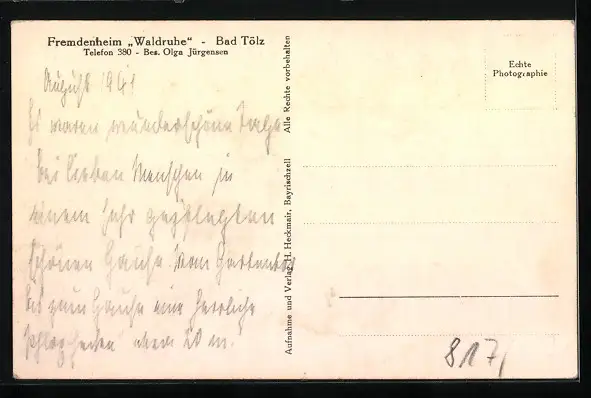 Fremdenheim „Waldruhe“ - Bad Tölz
Telefon 380 - Bes. Olga Jürgensen
August 1941
Es waren wunderschöne Tage
bei lieben Menschen in
einem sehr gepflegten
schönen Hause. Vom Gartentor
bis zum Hause eine herrliche
etwa 20 m.
Aufnahme und Verlag H. Heckmair, Bayrischzell Alle Rechte vorbehalten
Echte
Photographie
817